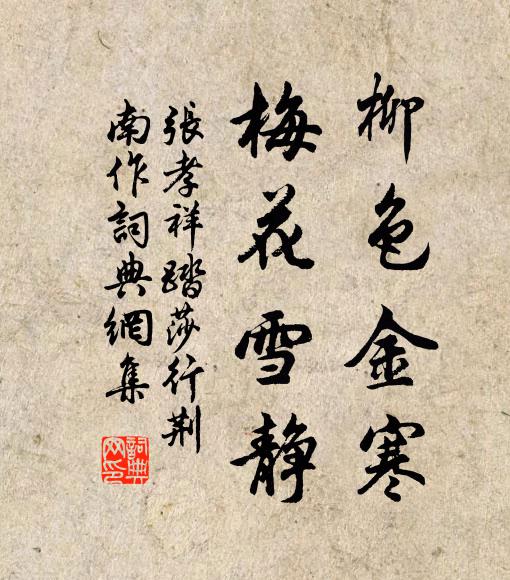 柳色金寒
梅花雪静
張孝祥踏莎行荆
南作詞典網集
詞典网印